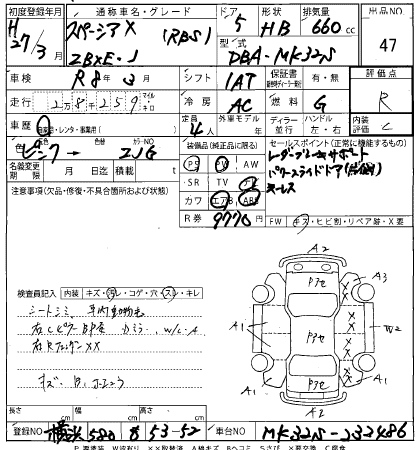 初度登録年月 通称車名・グレード ドア 形状 排気量 出品NO.
H27/3月 スペーシア X (RBS) 5 HB 660cc 47
ZBXE-J 型式 DBA-MK32S
車検 R8年3月 シフト IAT 保証書 有・無 評価点
走行 28259 マイル キロ 冷房 AC 燃料 G R
車歴 自家用・レンタ・事業用( ) 定員 4人 外車モデル ディーラー 並行 ハンドル 左・右 内装評価 C
色 ピンク → 色替 カラーNO. ZJG 装備品(純正品に限る) セールスポイント(正常に機能するもの)
PS PW AW レーダーブレーキサポート
名義変更期限 月 日迄 積載 t SR TV ナビ パワースライドドア(左側)
注意事項(欠品・修復・不具合箇所およびその状態) カワ エアB ABS キーレス
R券 9770円 FW キズ・ヒビ割・リペア跡・X要
A2
検査員記入 内装 キズ・汚レ・コゲ・穴・スレ・キレ Pアセ A3
シートシミ、車内動物毛 X X
右Cピラー BP有 カミラー、W/C・A A1 Pアセ W2
右Rフェンダー XX A1 X X
Pアセ
キズ、B、
A2
長さ cm 幅 cm 高さ cm
登録NO. 横浜 580 を 53-52 車台NO. MK32S-232486